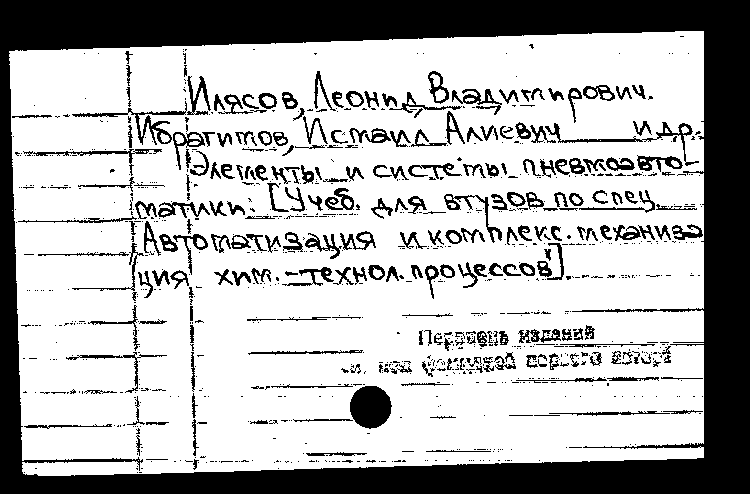 Илясов, Леонид Владимирович.
Ибрагимов, Исмаил Алиевич и др.
Элементы и системы пневмоавто-
матики: [Учеб. для втузов по спец.
"Автоматизация и комплекс. механиза
ция хим.-технол. процессов"].
Перечень изданий
см. под фамилией первого автора